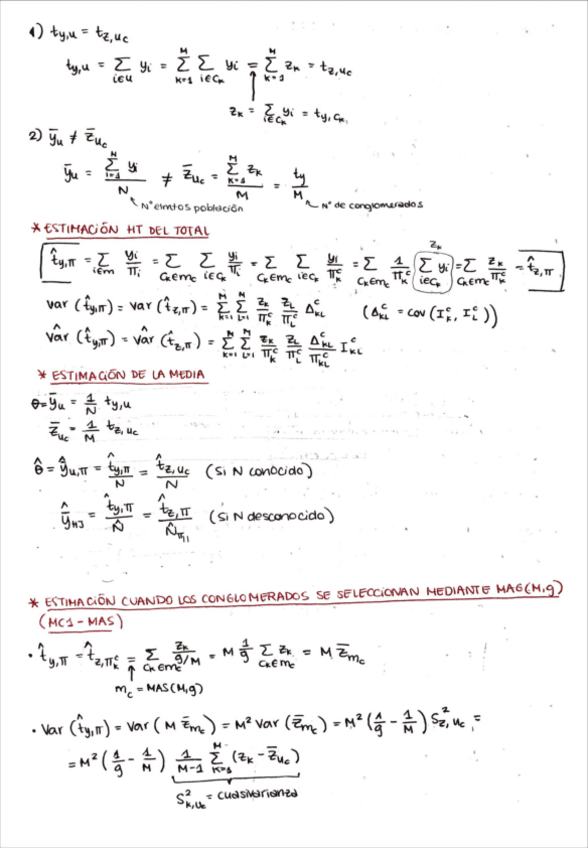 1) t_{y,u} = t_{z,u_c}
t_{y,u} = Σ_{i∈u} y_i = Σ_{k=1}^{M} Σ_{i∈C_k} y_i = Σ_{k=1}^{M} z_k = t_{z,u_c}
z_k = Σ_{i∈C_k} y_i = t_{y,C_k}
2) ȳ_u ≠ z̄_{u_c}
ȳ_u = Σ_{i=1}^{N} y_i / N ≠ z̄_{u_c} = Σ_{k=1}^{M} z_k / M = t_y / M
N° elmtos población
N° de conglomerados
* ESTIMACIÓN HT DEL TOTAL
z_k
t̂_{y,π} = Σ_{i∈m} y_i/π_i = Σ_{C_k∈m_c} Σ_{i∈C_k} y_i/π_i = Σ_{C_k∈m_c} Σ_{i∈C_k} y_i/π_k^c = Σ_{C_k∈m_c} 1/π_k^c Σ_{i∈C_k} y_i = Σ_{C_k∈m_c} z_k/π_k^c = t̂_{z,π}
var (t̂_{y,π}) = var (t̂_{z,π}) = Σ_{k=1}^{M} Σ_{L=1}^{M} z_k/π_k^c z_L/π_L^c Δ_{kL}^c (Δ_{kL}^c = cov (I_k^c, I_L^c))
vâr (t̂_{y,π}) = vâr (t̂_{z,π}) = Σ_{k=1}^{M} Σ_{L=1}^{M} z_k/π_k^c z_L/π_L^c Δ_{kL}^c/π_{kL}^c I_{kL}^c
* ESTIMACIÓN DE LA MEDIA
θ = ȳ_u = 1/N t_{y,u}
z̄_{u_c} = 1/M t_{z,u_c}
θ̂ = ŷ_{u,π} = t̂_{y,π}/N = t̂_{z,u_c}/N (Si N conocido)
ȳ̂_{HJ} = t̂_{y,π}/N̂ = t̂_{z,π}/N̂_π (Si N desconocido)
* ESTIMACIÓN CUANDO LOS CONGLOMERADOS SE SELECCIONAN MEDIANTE MAS(M,g)
(MC1 - MAS)
· t̂_{y,π} = t̂_{z,π_k^c} = Σ_{C_k∈m_c} z_k/(g/M) = M 1/g Σ_{C_k∈m_c} z_k = M z̄_{m_c}
m_c = MAS(M,g)
· Var (t̂_{y,π}) = Var (M z̄_{m_c}) = M² Var (z̄_{m_c}) = M² (1/g - 1/M) S²_{z,u_c} =
= M² (1/g - 1/M) 1/(M-1) Σ_{k=1}^{M} (z_k - z̄_{u_c})
S²_{k,u_c} = cuasivarianza